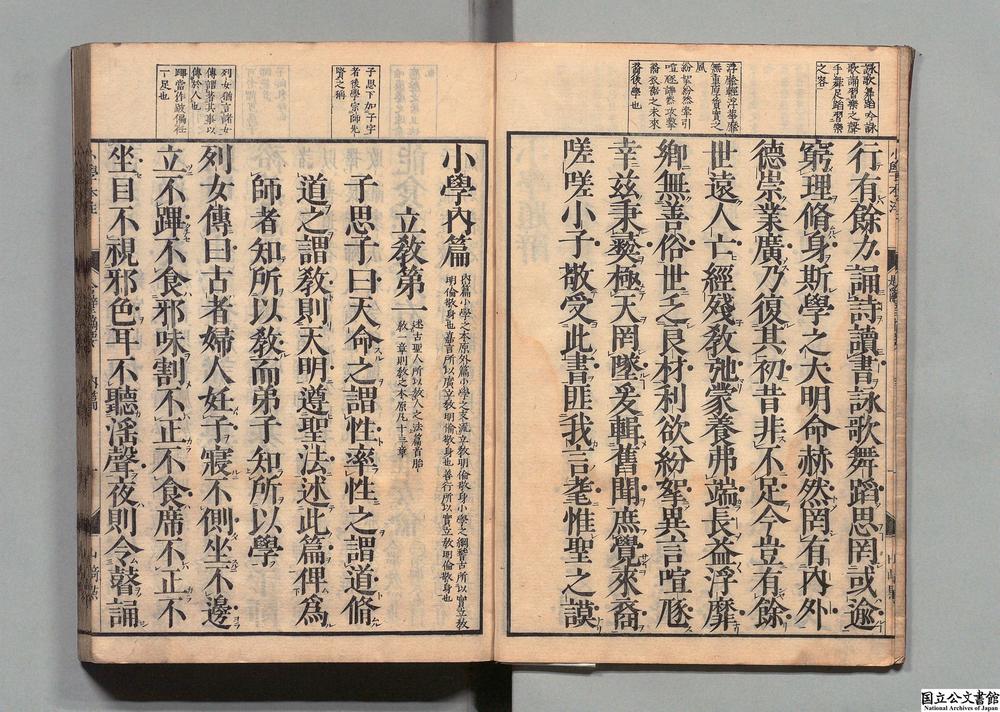 詠歌舞蹈吟詠
歌誦習樂之聲
手舞足蹈習樂
之容
浮靡輕浮華靡
無重厚質實之
風
紛挐紛然牽引
喧豗譁然攻擊
裔衣裾之末來
裔後學也
行有餘力誦詩讀書詠歌舞蹈思罔或逾
窮理脩身斯學之大明命赫然罔有內外
德崇業廣乃復其初昔非不足今豈有餘
世遠人亡經殘敎弛蒙養弗端長益浮靡
鄉無善俗世乏良材利欲紛挐異言喧豗
幸茲秉彝極天罔墜爰輯舊聞庶覺來裔
嗟嗟小子敬受此書匪我言耄惟聖之謨
子思下加子字
者後學宗師先
賢之稱
列女猶言諸女
傳謂著其事以
傳於人也
蹕當作跛偏任
一足也
小學內篇
內篇小學之本原外篇小學之支流立敎明倫敬身小學之綱稽古所以實立敎
明倫敬身也嘉言所以廣立敎明倫敬身也善行所以實立敎明倫敬身也
立敎第一
述古聖人所以敎人之法篇首胎
敎一章則敎之本原凡十三章
子思子曰天命之謂性率性之謂道脩
道之謂敎則天明遵聖法述此篇俾爲
師者知所以敎而弟子知所以學
列女傳曰古者婦人妊子寢不側坐不邊
立不蹕不食邪味割不正不食席不正不
坐目不視邪色耳不聽淫聲夜則令瞽誦
国立公文書館
National Archives of Japan